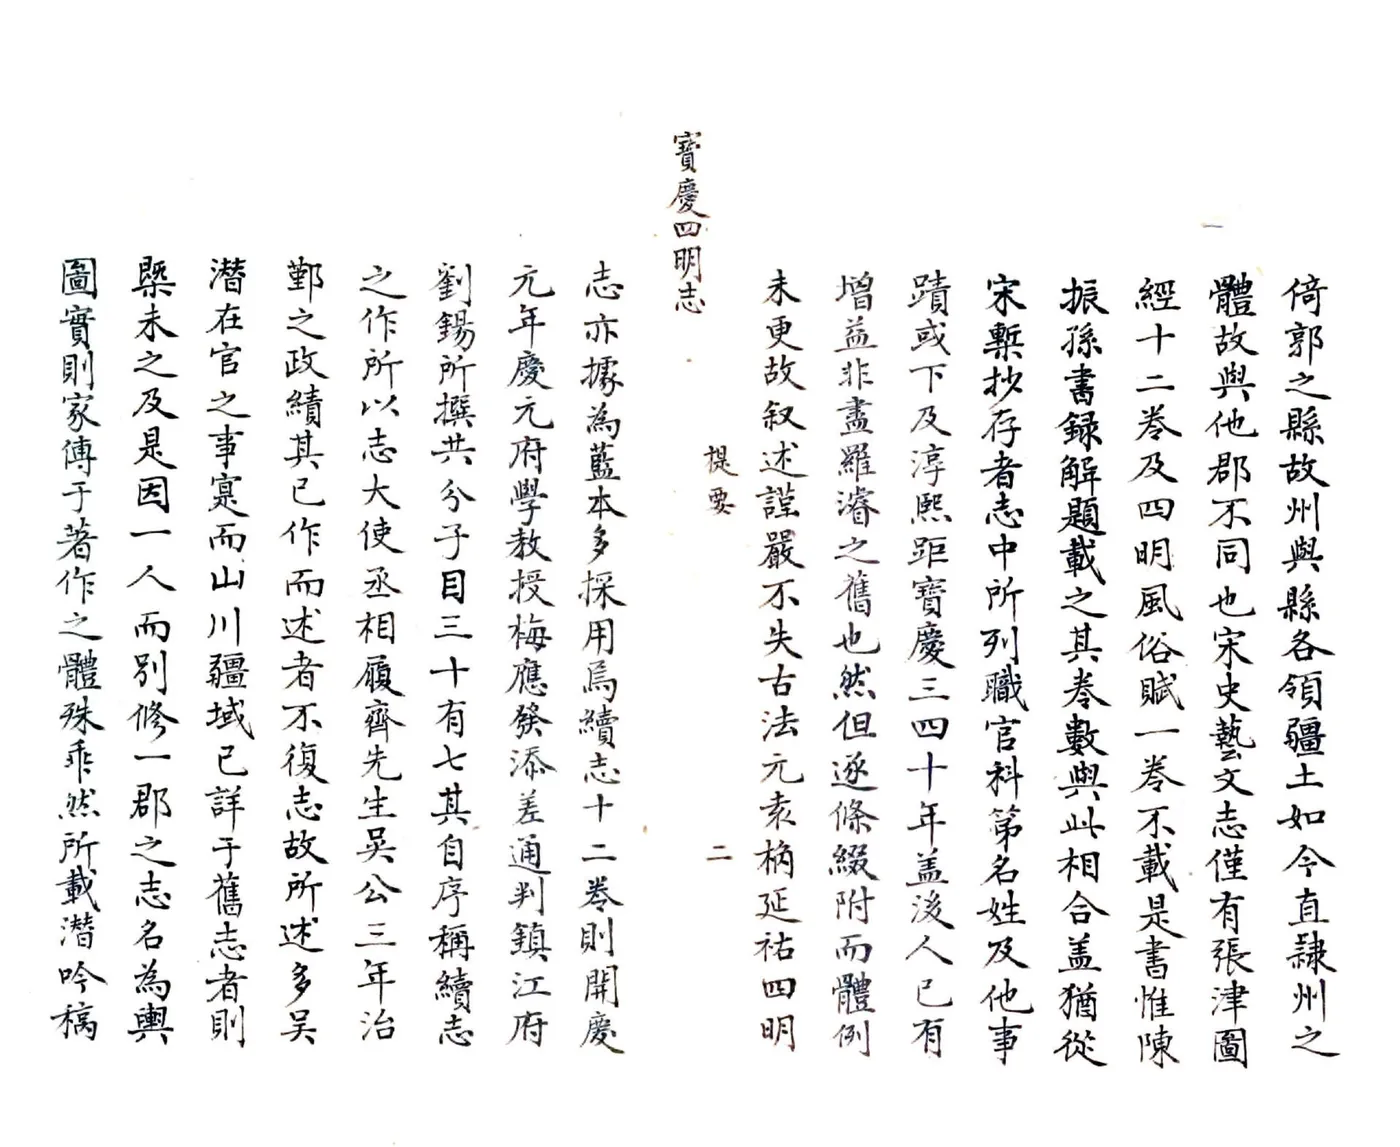 倚郭之縣故州與縣各領疆土如今直隷州之
體故與他郡不同也宋史藝文志僅有張津圖
經十二卷及四明風俗賦一卷不載是書惟陳
振孫書録解題載之其卷數與此相合盖猶從
宋槧抄存者志中所列職官科第名姓及他事
蹟或下及淳熙距寳慶三四十年盖後人已有
增益非盡羅濬之舊也然但逐條綴附而體例
未更故叙述謹嚴不失古法元袁桷延祐四明
寳慶四明志
提要
二
志亦據為藍本多採用焉續志十二卷則開慶
元年慶元府學教授梅應發添差通判鎮江府
劉錫所撰共分子目三十有七其自序稱續志
之作所以志大使丞相履齊先生吳公三年治
鄞之政績其已作而述者不復志故所述多吴
潛在官之事寔而山川疆域已詳于舊志者則
槩未之及是因一人而别修一郡之志名為輿
圖實則家傳于著作之體殊乖然所載潛吟稿